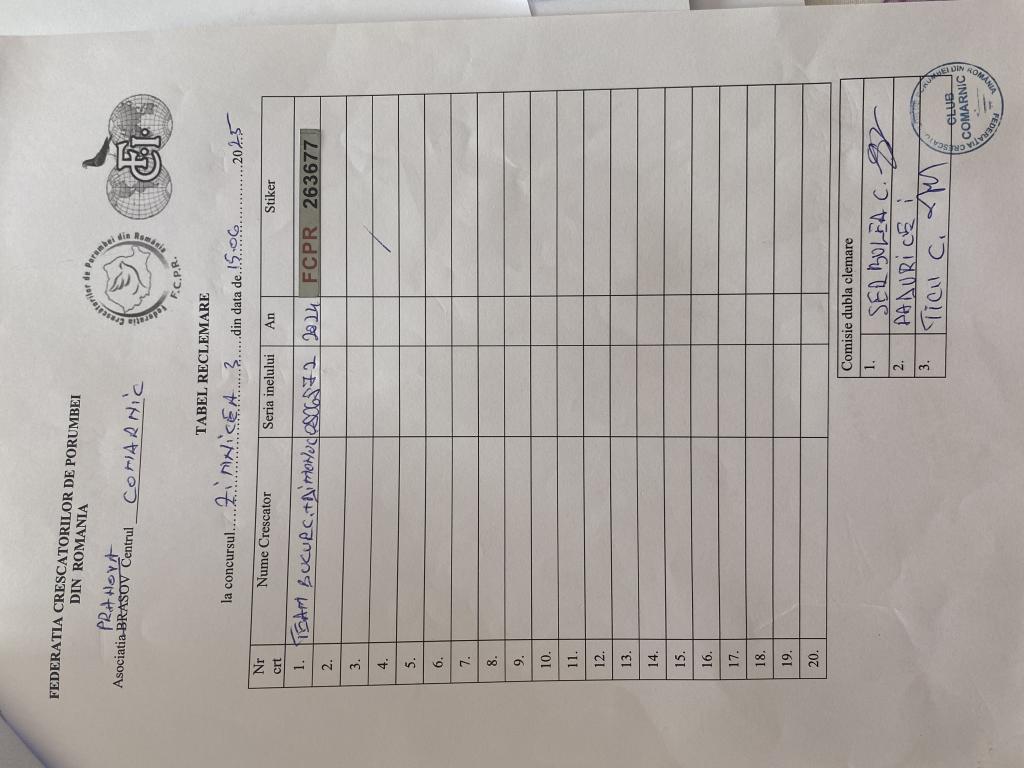 FEDERATIA CRESCATORILOR DE PORUMBEI
DIN ROMANIA
Federatia Crescatorilor de Porumbei din România
F.C.P.R.
F.C.I.
PRAHOVA
Asociatia BRASOV Centrul COMARNIC
TABEL RECLEMARE
la concursul ZIMNICEA 3 din data de 15.06 2025
Nr crt Nume Crescator Seria inelului An Stiker
1. TEAM BUCUR C.+ 2024 FCPR 263677
2.
3.
4.
5.
6.
7.
8.
9.
10.
11.
12.
13.
14.
15.
16.
17.
18.
19.
20.
Comisie dubla clemare
1. SERBULEA C.
2. PADURICE i
3. TICU C.
FEDERATIA CRESCATORILOR PORUMBEI DIN ROMANIA
CLUB
COMARNIC